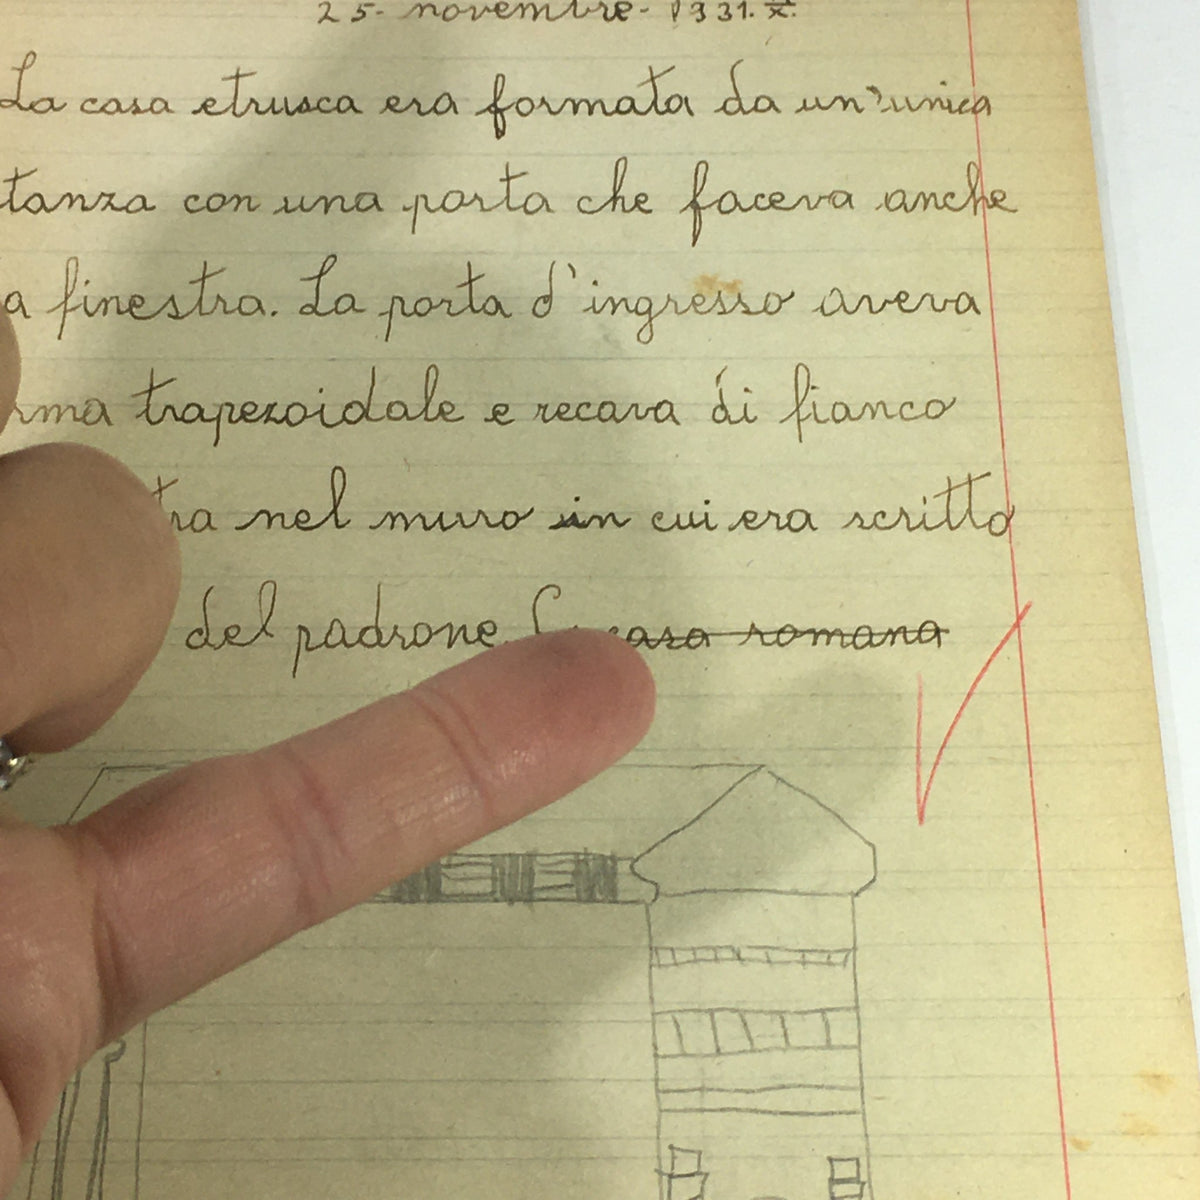 25- novembre- 1931. X.
La casa etrusca era formata da un'unica
tanza con una porta che faceva anche
a finestra. La porta d'ingresso aveva
rma trapezoidale e recava di fianco
tra nel muro in cui era scritto
del padrone casa romana